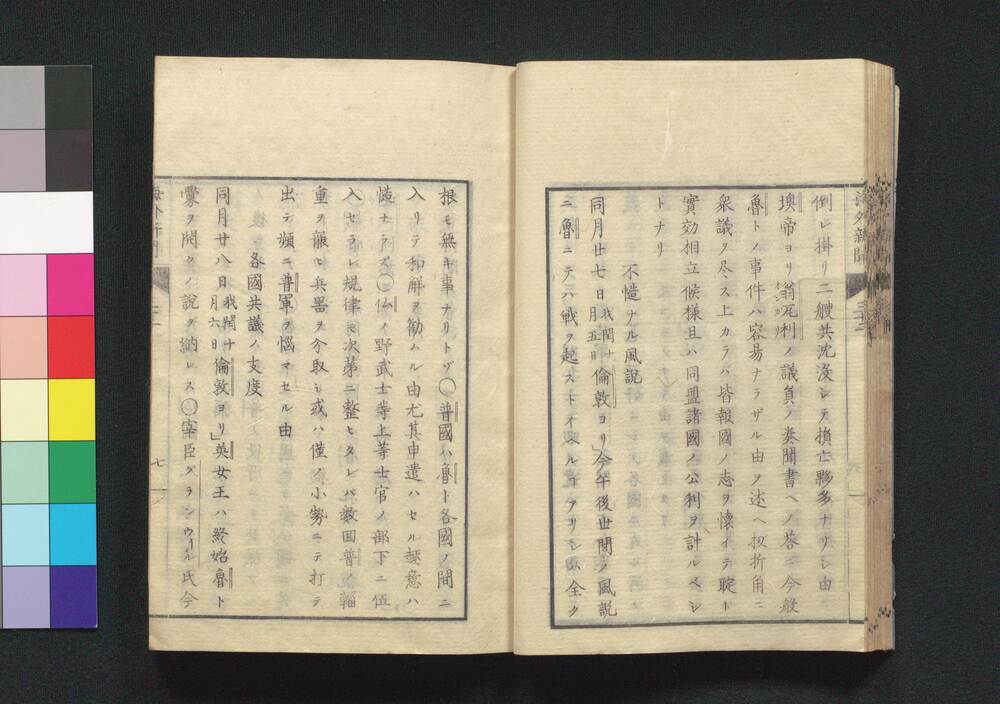 海外新聞
倒レ掛リ二艘共沈淺シテ損亡夥多ナリシ由
墺帝ヨリ翁尼利ノ議負ノ奏聞書ヘノ答ニ今般
魯トノ事件ハ容易ナラザル由ヲ述ヘ扨折角ニ
衆議ヲ尽ス上カラハ皆報國ノ志ヲ懐イテ聢ト
實効相立候様且ハ同盟諸國ノ公利ヲ計ルベシ
トナリ
不慥ナル風説
同月廿七日我閏十月五日倫敦ヨリ」今午後世間ノ風説
ニ魯ニテハ戦ヲ起ストイヘル
アリシ
全ク
根モ無キ事ナリトゾ〇普國ハ魯ト各國ノ間ニ
入リテ和解ヲ勧ムル由尤其申遣ハセル趣意ハ
慥ナラズ〇仏ノ野武士等上等士官ノ部下ニ伍
入セラレ規律モ次第ニ整ヒタレバ数回普ノ輜
重ヲ
兵器ヲ分取シ或ハ僅ノ小勢ニテ打テ
出テ頻ニ普軍ヲ悩マセル由
各國共議ノ支度
同月廿八日我閏十月六日倫敦ヨリ」英女王ハ終始魯ト
釁ヲ開クノ説ヲ納レス〇宰臣グランウイル氏今
七